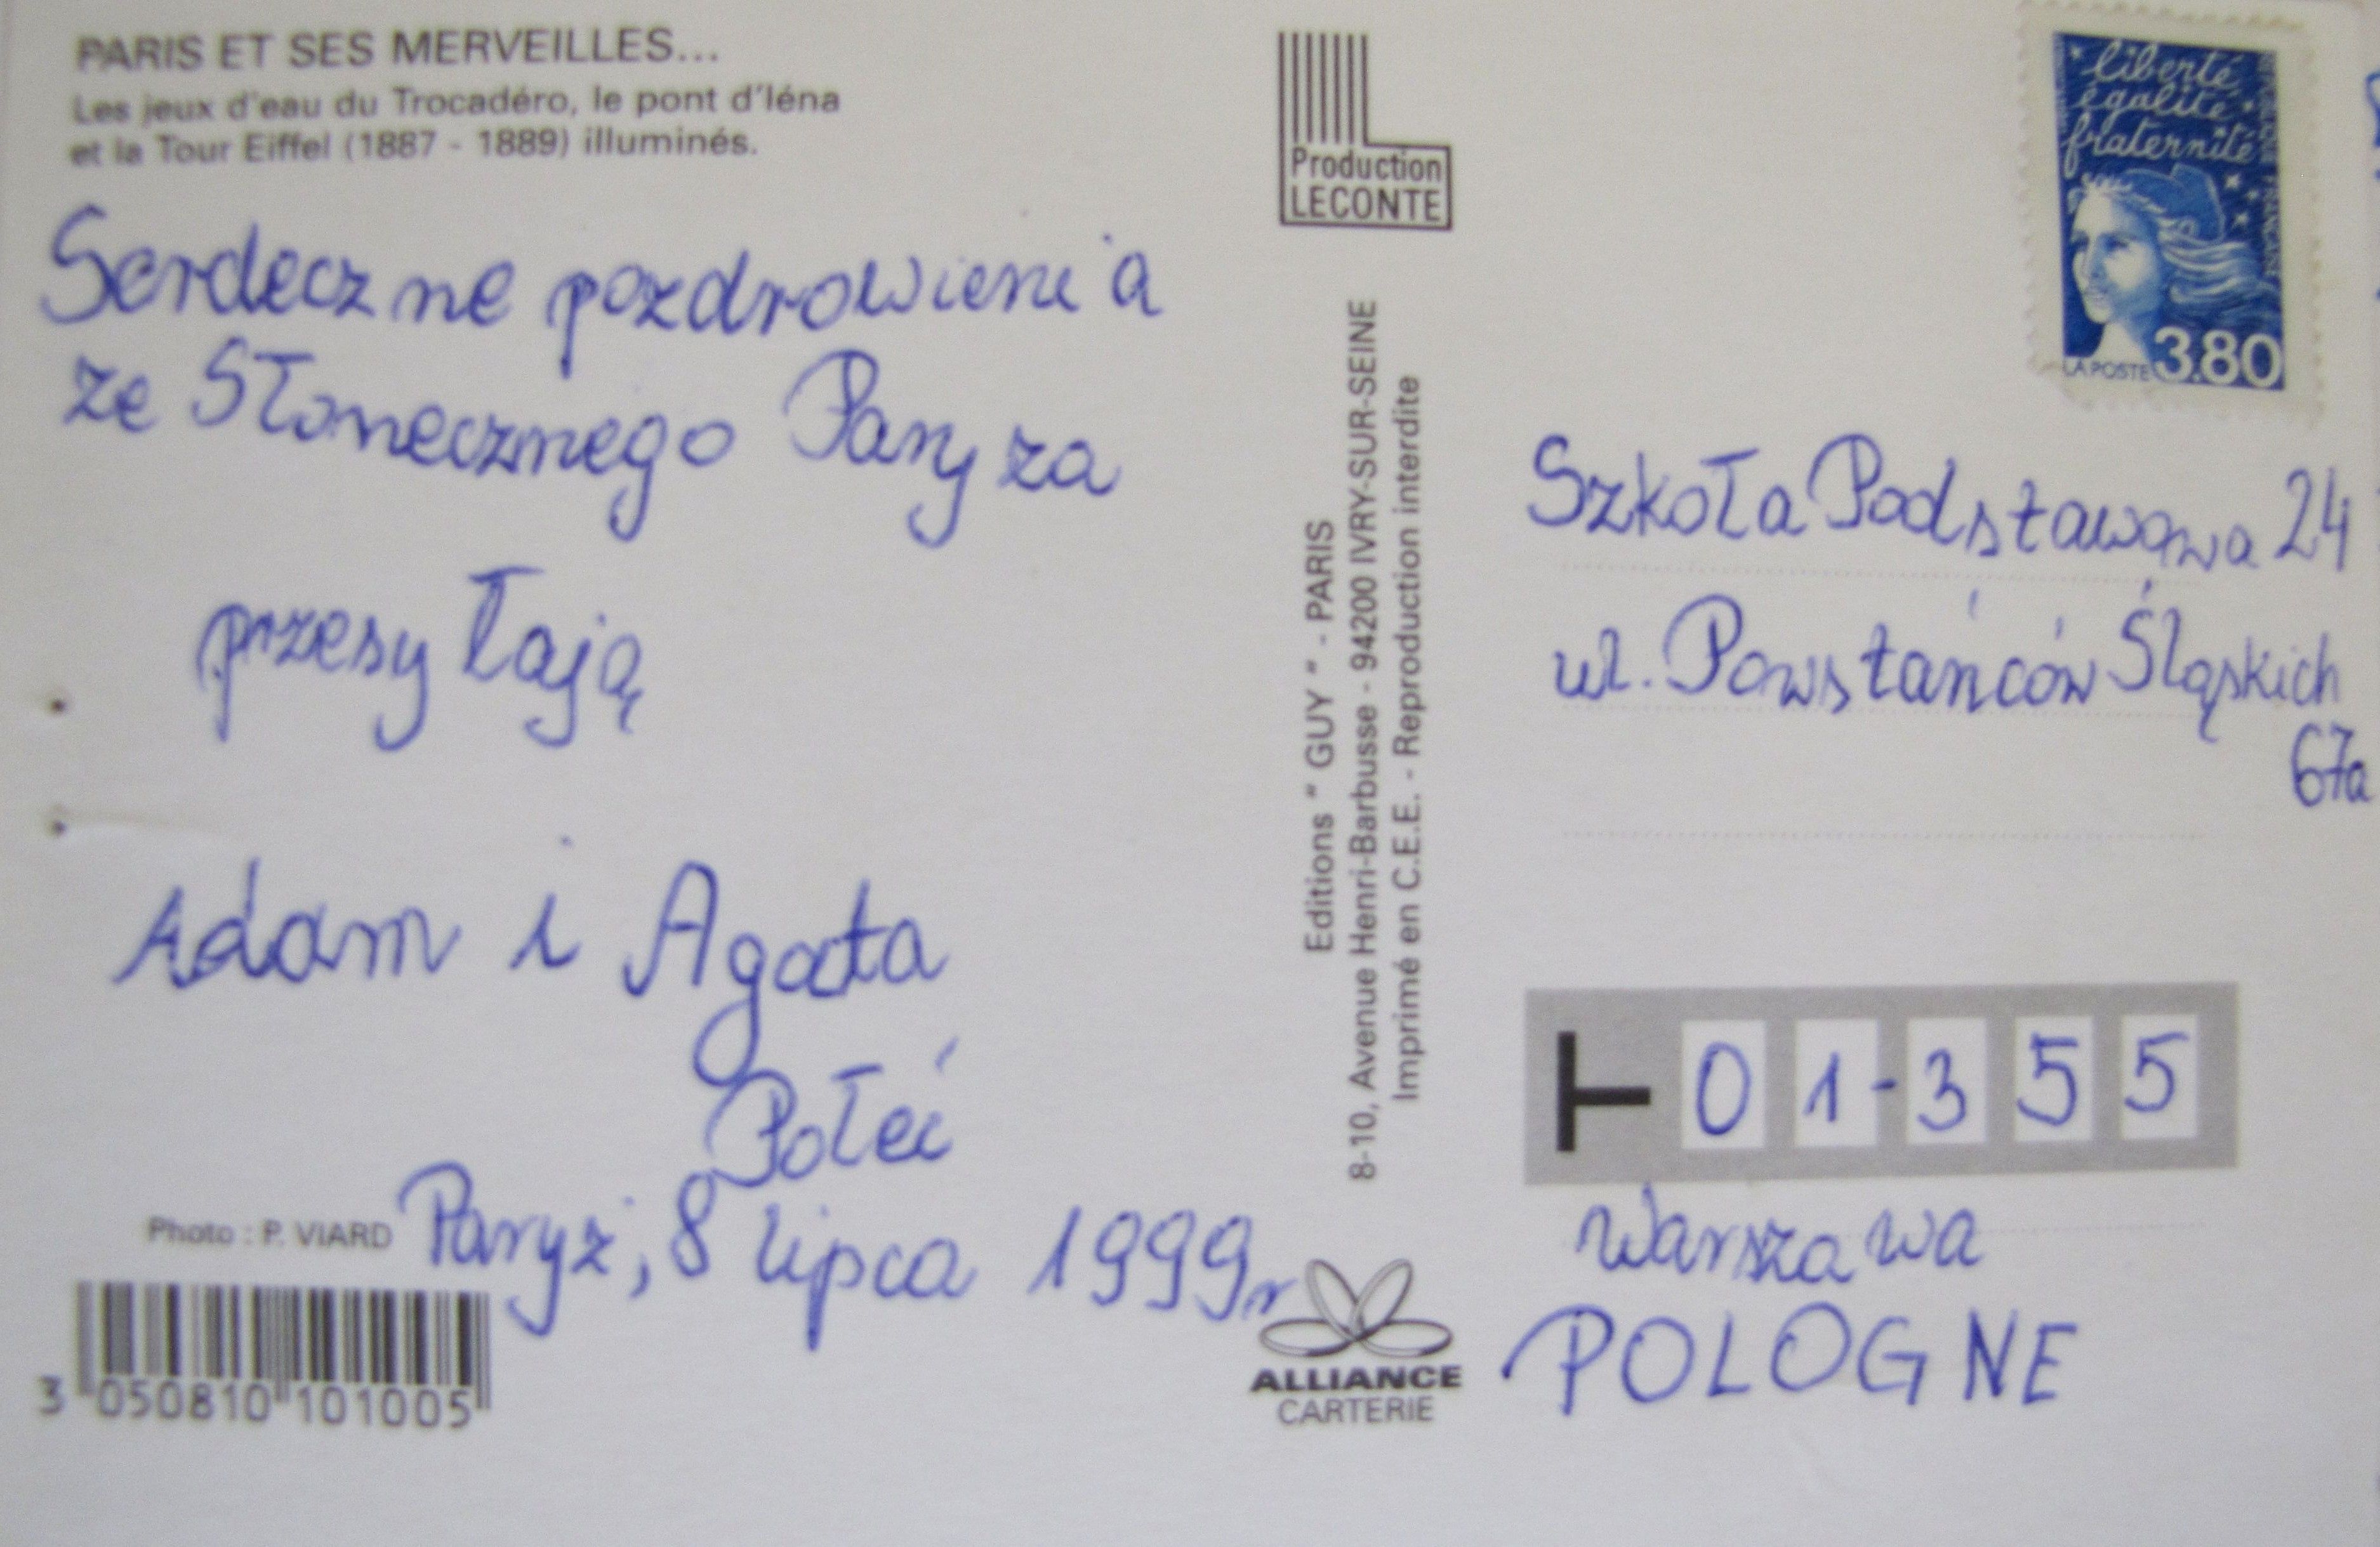 PARIS ET SES MERVEILLES...
Les jeux d'eau du Trocadéro, le pont d'Iéna
et la Tour Eiffel (1887 - 1889) illuminés.
Serdeczne pozdrowienia
ze Słonecznego Paryza
przesyłają
Adam i Agata
Połeć
Photo : P. VIARD
Paryż, 8 lipca 1999r
3 050810 101005
Production
LECONTE
Editions " GUY " - PARIS
8-10, Avenue Henri-Barbusse - 94200 IVRY-SUR-SEINE
Imprimé en C.E.E. - Reproduction interdite
ALLIANCE
CARTERIE
liberté
égalité
fraternité
RÉPUBLIQUE FRANÇAISE
LA POSTE 3.80
Szkoła Podstawowa 24
ul. Powstańców Śląskich
67a
T 01-355
Warszawa
POLOGNE